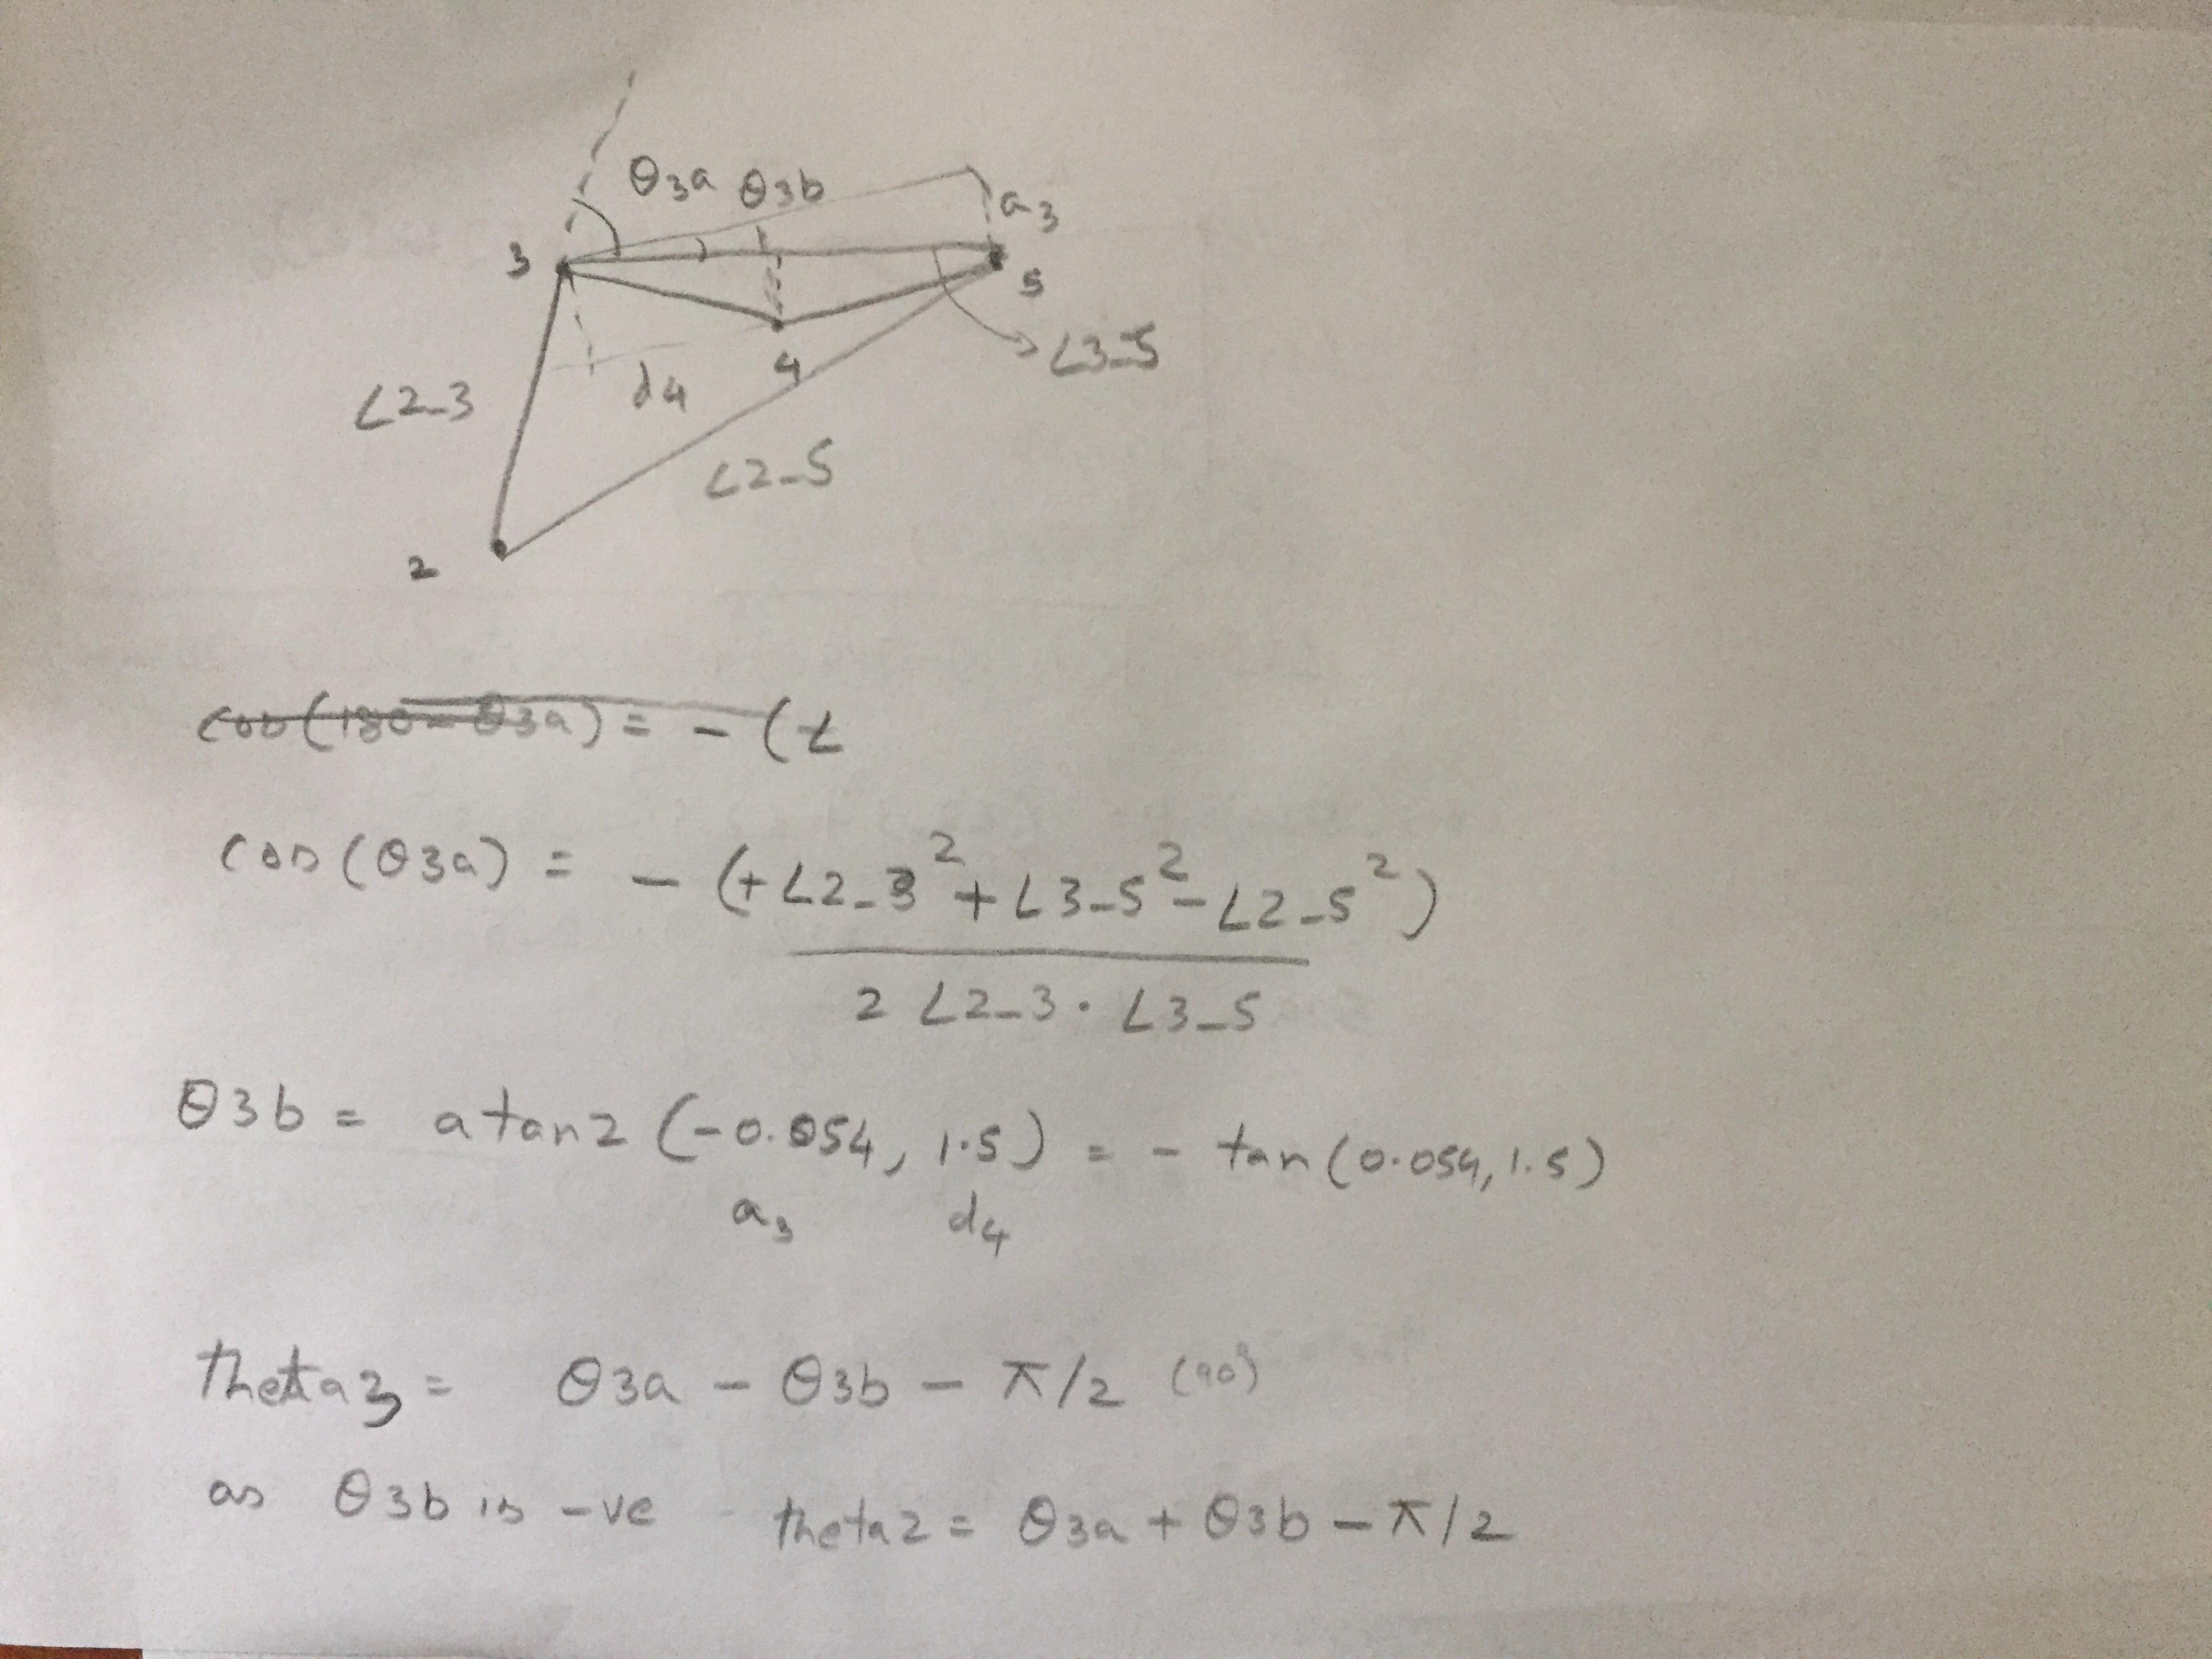 θ3a θ3b
a3
3
5
L3_5
4
d4
L2_3
L2_5
2
cos(180-θ3a) = - (L
cos(θ3a) = - (+L2_3²+L3_5²-L2_5²)
2 L2_3 · L3_5
θ3b = atan2 (-0.054, 1.5) = - tan(0.054, 1.5)
a3 d4
theta3 = θ3a - θ3b - π/2 (90°)
as θ3b is -ve theta2 = θ3a + θ3b - π/2